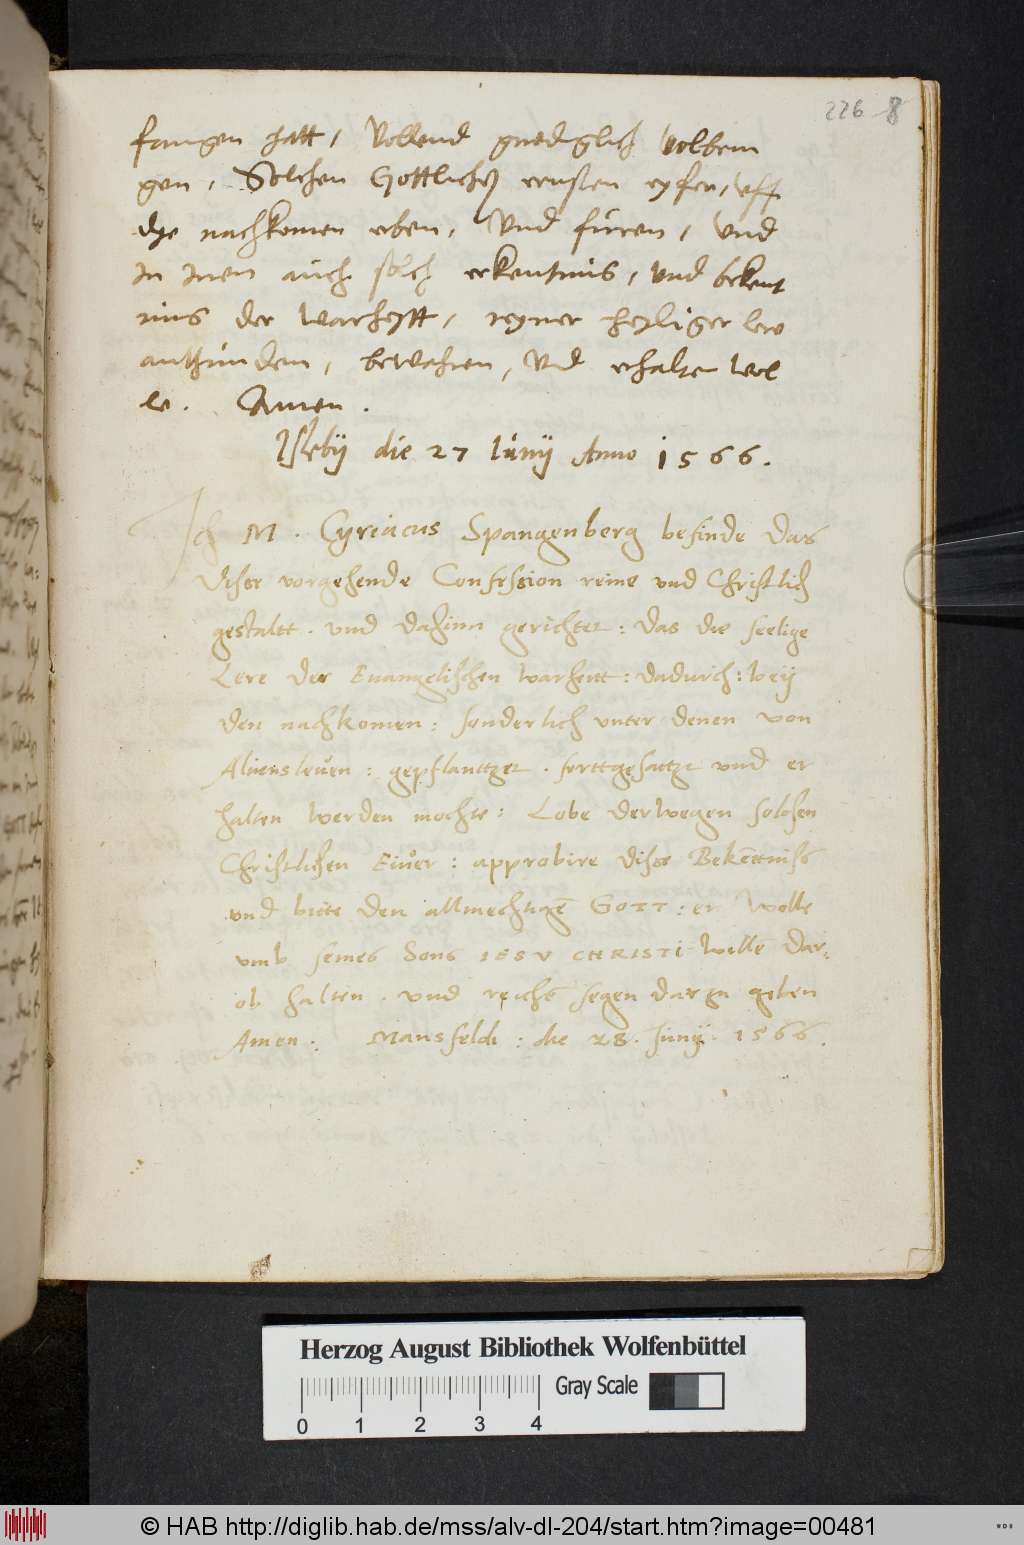 226 8
fangen hatt, Vollend gnediglich volbrin
gen, Solchen Gottlichen ernsten eyfer, vff
dye nachkomen erben, Vnd füren, Vnd
In Inen auch solch erkentnus, Vnd bekent
nus der warheytt, reyner heyliger lere
anthünden, bewahren, Vnd erhalten wol
le. Amen.
Isleby die 27 Iunij Anno 1566.
Ich M. Cyriacus Spangenberg befinde das
diese vorgehende Confession reine vnd Christlich
gestaltt. vnd dahinn gerichtet: das die seelige
Lere der Euangelischen warheitt: dadurch: bey
den nachkomen: sonderlich vnter denen von
Aluensleuen: gepflanttzet. forttgesattzt vnd er
halten werden mochte: Lobe derwegen solchen
Christlichen Eiuer: approbire diese Bekēttniss
vnd bitte den allmechtigē GOTT: er wolle
vmb seines Sons IESV CHRISTI willē dar-
ob halten. vnd reichē segen darzu geben
Amen. Mansfeldt: die 28. Junij. 1566.
Herzog August Bibliothek Wolfenbüttel
Gray Scale
0 1 2 3 4
© HAB http://diglib.hab.de/mss/alv-dl-204/start.htm?image=00481